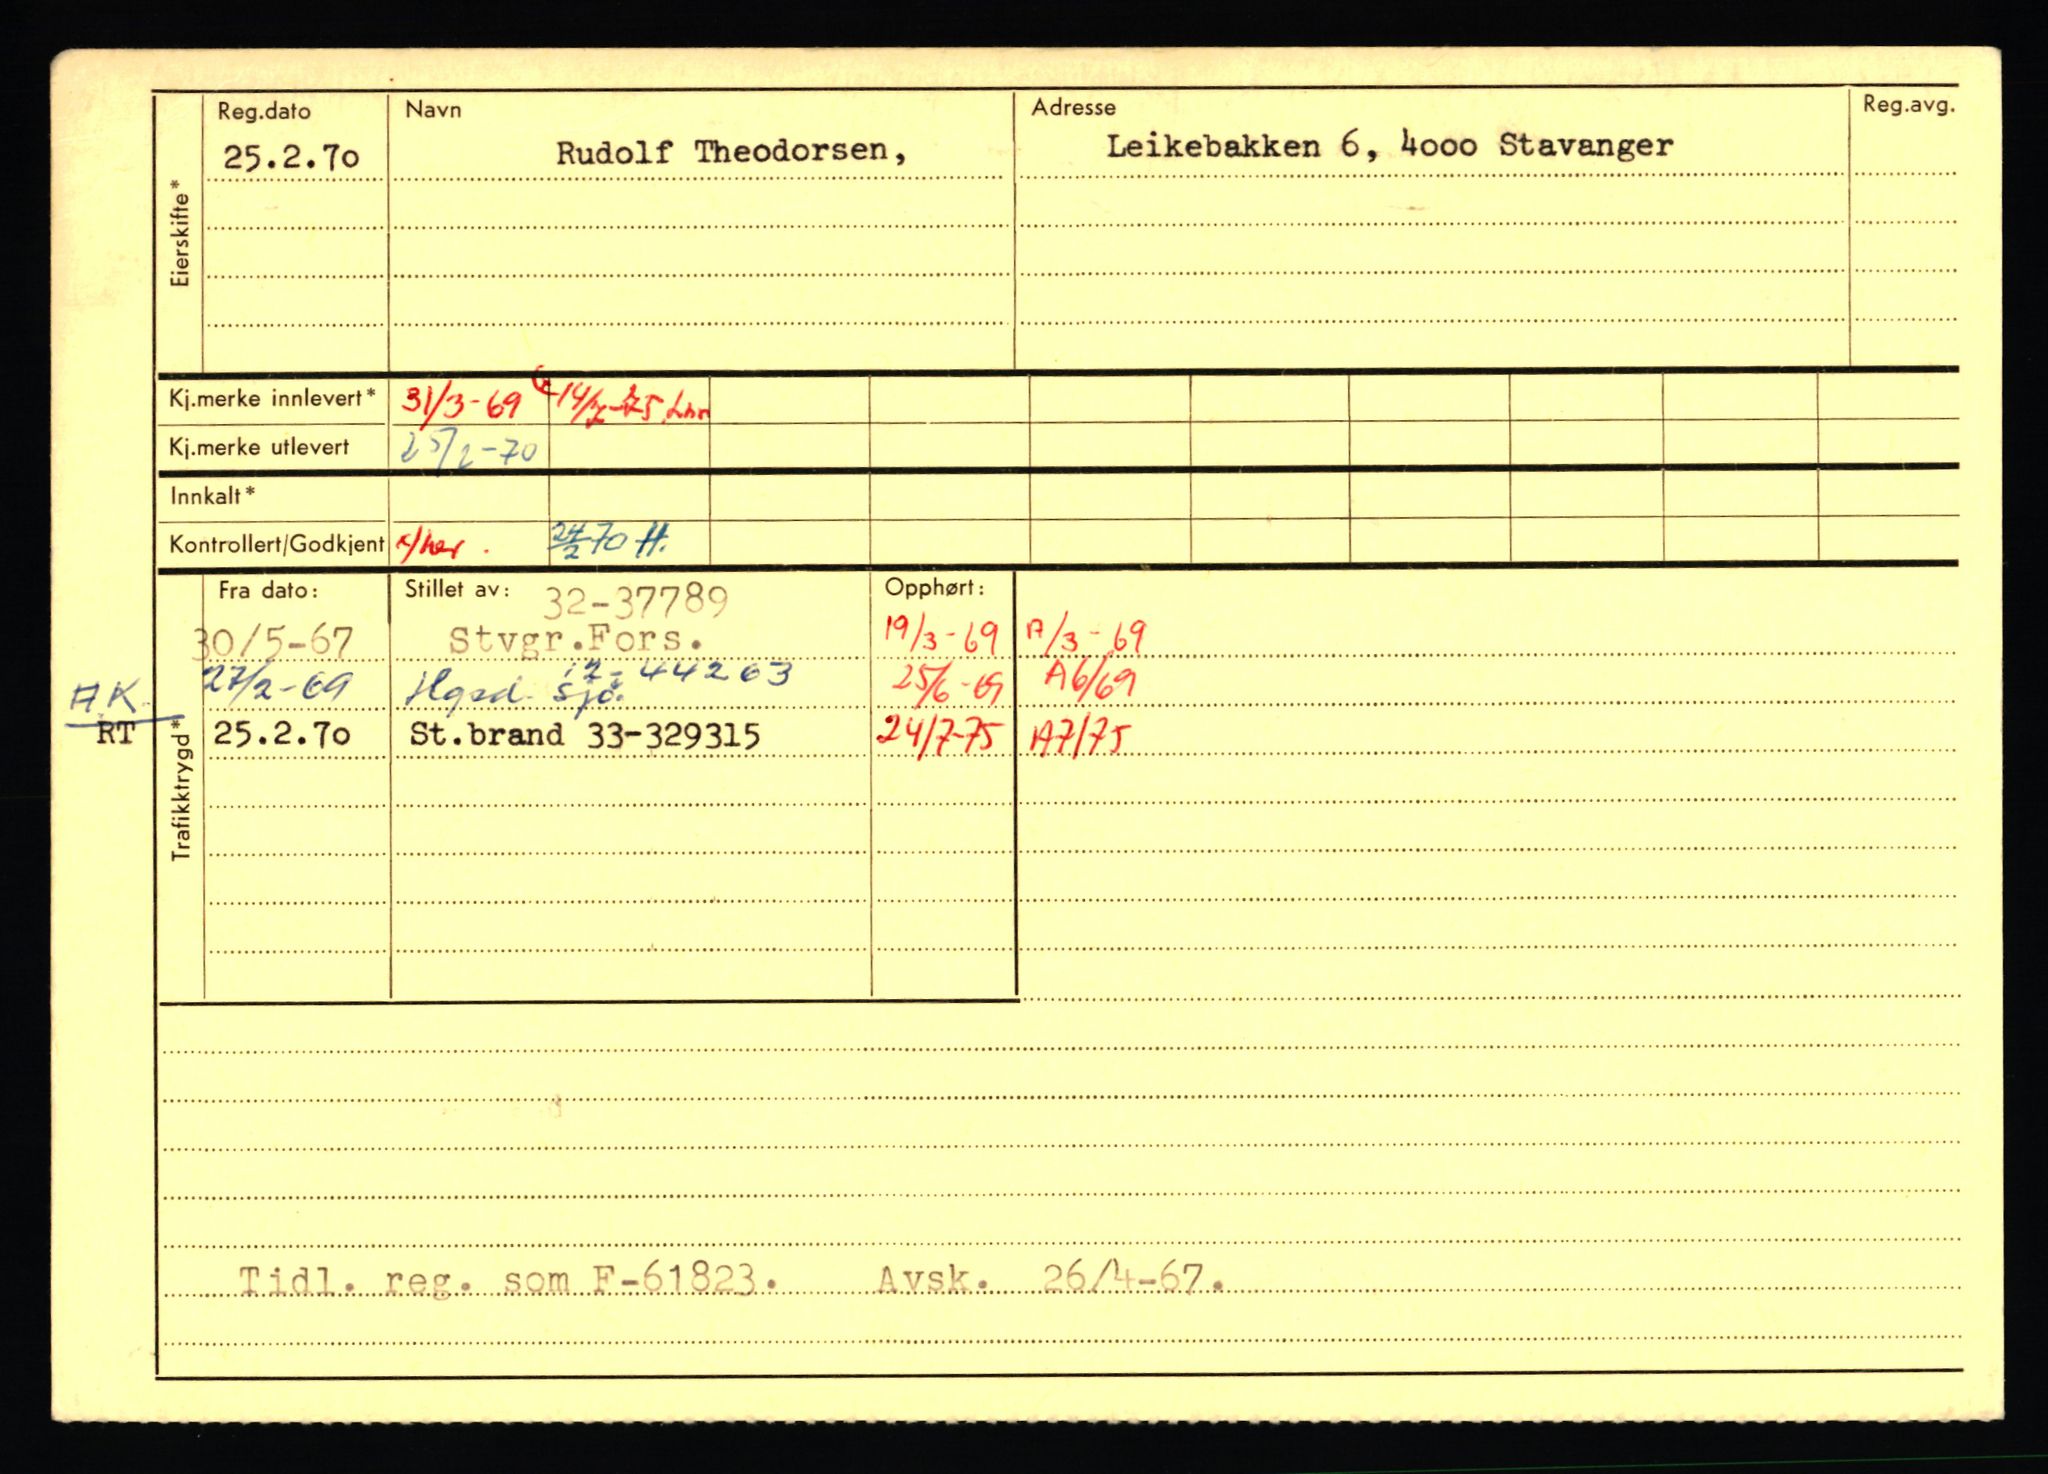 Eierskifte*
Reg.dato Navn Adresse Reg.avg.
25.2.7o Rudolf Theodorsen, Leikebakken 6, 4ooo Stavanger
Kj.merke innlevert* 31/3-69 14/7-75
Kj.merke utlevert 25/2-70
Innkalt*
Kontrollert/Godkjent 24/2-70 H.
Trafikktrygd*
Fra dato: Stillet av: 32-37789 Opphørt:
30/5-67 Stvgr.Fors. 19/3-69 A/3-69
12-44263
27/2-69 Hgsd. Sjø. 25/6-69 A6/69
A.K.
RT 25.2.7o St.brand 33-329315 24/7-75 A7/75
Tidl. reg. som F-61823. Avsk. 26/4-67.